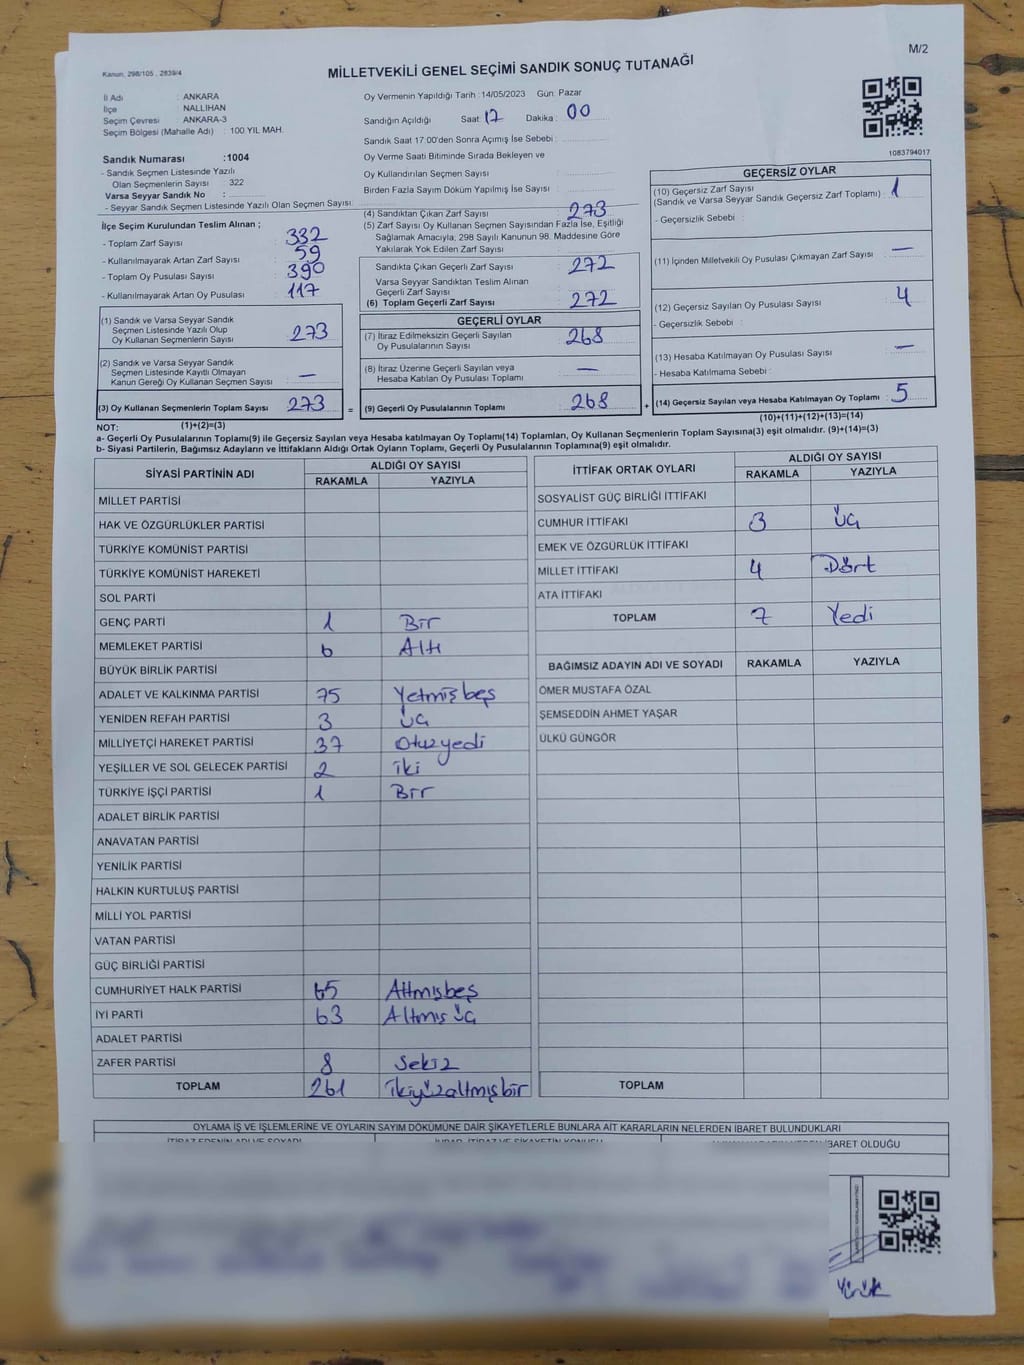 M/2
Kanun, 298/105 , 2839/4
MİLLETVEKİLİ GENEL SEÇİMİ SANDIK SONUÇ TUTANAĞI
İl Adı : ANKARA
İlçe : NALLIHAN
Seçim Çevresi : ANKARA-3
Seçim Bölgesi (Mahalle Adı) : 100 YIL MAH.
Sandık Numarası :1004
- Sandık Seçmen Listesinde Yazılı
Olan Seçmenlerin Sayısı : 322
Varsa Seyyar Sandık No :
- Seyyar Sandık Seçmen Listesinde Yazılı Olan Seçmen Sayısı:
Oy Vermenin Yapıldığı Tarih :14/05/2023 Gün: Pazar
Sandığın Açıldığı Saat: 17 Dakika: 00
Sandık Saat 17:00'den Sonra Açımış İse Sebebi :
Oy Verme Saati Bitiminde Sırada Bekleyen ve
Oy Kullandırılan Seçmen Sayısı :
Birden Fazla Sayım Döküm Yapılmış İse Sayısı :
1083794017
İlçe Seçim Kurulundan Teslim Alınan ;
- Toplam Zarf Sayısı : 332
- Kullanılmayarak Artan Zarf Sayısı : 59
- Toplam Oy Pusulası Sayısı : 390
- Kullanılmayarak Artan Oy Pusulası : 117
(1) Sandık ve Varsa Seyyar Sandık
Seçmen Listesinde Yazılı Olup
Oy Kullanan Seçmenlerin Sayısı : 273
(2) Sandık ve Varsa Seyyar Sandık
Seçmen Listesinde Kayıtlı Olmayan
Kanun Gereği Oy Kullanan Seçmen Sayısı : —
(3) Oy Kullanan Seçmenlerin Toplam Sayısı : 273
(1)+(2)=(3)
(4) Sandıktan Çıkan Zarf Sayısı : 273
(5) Zarf Sayısı Oy Kullanan Seçmen Sayısından Fazla İse, Eşitliği
Sağlamak Amacıyla, 298 Sayılı Kanunun 98. Maddesine Göre
Yakılarak Yok Edilen Zarf Sayısı :
Sandıkta Çıkan Geçerli Zarf Sayısı : 272
Varsa Seyyar Sandıktan Teslim Alınan
Geçerli Zarf Sayısı :
(6) Toplam Geçerli Zarf Sayısı : 272
GEÇERLİ OYLAR
(7) İtiraz Edilmeksizin Geçerli Sayılan
Oy Pusulalarının Sayısı : 268
(8) İtiraz Üzerine Geçerli Sayılan veya
Hesaba Katılan Oy Pusulası Toplamı : —
= (9) Geçerli Oy Pusulalarının Toplamı : 268
GEÇERSİZ OYLAR
(10) Geçersiz Zarf Sayısı
(Sandık ve Varsa Seyyar Sandık Geçersiz Zarf Toplamı) : 1
- Geçersizlik Sebebi :
(11) İçinden Milletvekili Oy Pusulası Çıkmayan Zarf Sayısı : —
(12) Geçersiz Sayılan Oy Pusulası Sayısı : 4
- Geçersizlik Sebebi :
(13) Hesaba Katılmayan Oy Pusulası Sayısı : —
- Hesaba Katılmama Sebebi :
+ (14) Geçersiz Sayılan veya Hesaba Katılmayan Oy Toplamı : 5
(10)+(11)+(12)+(13)=(14)
NOT:
a- Geçerli Oy Pusulalarının Toplamı(9) ile Geçersiz Sayılan veya Hesaba katılmayan Oy Toplamı(14) Toplamları, Oy Kullanan Seçmenlerin Toplam Sayısına(3) eşit olmalıdır. (9)+(14)=(3)
b- Siyasi Partilerin, Bağımsız Adayların ve İttifakların Aldığı Ortak Oyların Toplamı, Geçerli Oy Pusulalarının Toplamına(9) eşit olmalıdır.
SİYASİ PARTİNİN ADI ALDIĞI OY SAYISI
RAKAMLA YAZIYLA
MİLLET PARTİSİ
HAK VE ÖZGÜRLÜKLER PARTİSİ
TÜRKİYE KOMÜNİST PARTİSİ
TÜRKİYE KOMÜNİST HAREKETİ
SOL PARTİ
GENÇ PARTİ 1 Bir
MEMLEKET PARTİSİ 6 Altı
BÜYÜK BİRLİK PARTİSİ
ADALET VE KALKINMA PARTİSİ 75 Yetmişbeş
YENİDEN REFAH PARTİSİ 3 üç
MİLLİYETÇİ HAREKET PARTİSİ 37 Otuzyedi
YEŞİLLER VE SOL GELECEK PARTİSİ 2 iki
TÜRKİYE İŞÇİ PARTİSİ 1 Bir
ADALET BİRLİK PARTİSİ
ANAVATAN PARTİSİ
YENİLİK PARTİSİ
HALKIN KURTULUŞ PARTİSİ
MİLLİ YOL PARTİSİ
VATAN PARTİSİ
GÜÇ BİRLİĞİ PARTİSİ
CUMHURİYET HALK PARTİSİ 65 Altmışbeş
İYİ PARTİ 63 Altmış üç
ADALET PARTİSİ
ZAFER PARTİSİ 8 Sekiz
TOPLAM 261 ikiyüzaltmışbir
İTTİFAK ORTAK OYLARI ALDIĞI OY SAYISI
RAKAMLA YAZIYLA
SOSYALİST GÜÇ BİRLİĞİ İTTİFAKI
CUMHUR İTTİFAKI 3 üç
EMEK VE ÖZGÜRLÜK İTTİFAKI
MİLLET İTTİFAKI 4 Dört
ATA İTTİFAKI
TOPLAM 7 Yedi
BAĞIMSIZ ADAYIN ADI VE SOYADI RAKAMLA YAZIYLA
ÖMER MUSTAFA ÖZAL
ŞEMSEDDİN AHMET YAŞAR
ÜLKÜ GÜNGÖR
TOPLAM
OYLAMA İŞ VE İŞLEMLERİNE VE OYLARIN SAYIM DÖKÜMÜNE DAİR ŞİKAYETLERLE BUNLARA AİT KARARLARIN NELERDEN İBARET BULUNDUKLARI
İTİRAZ EDENİN ADI VE SOYADI
İBARET OLDUĞU